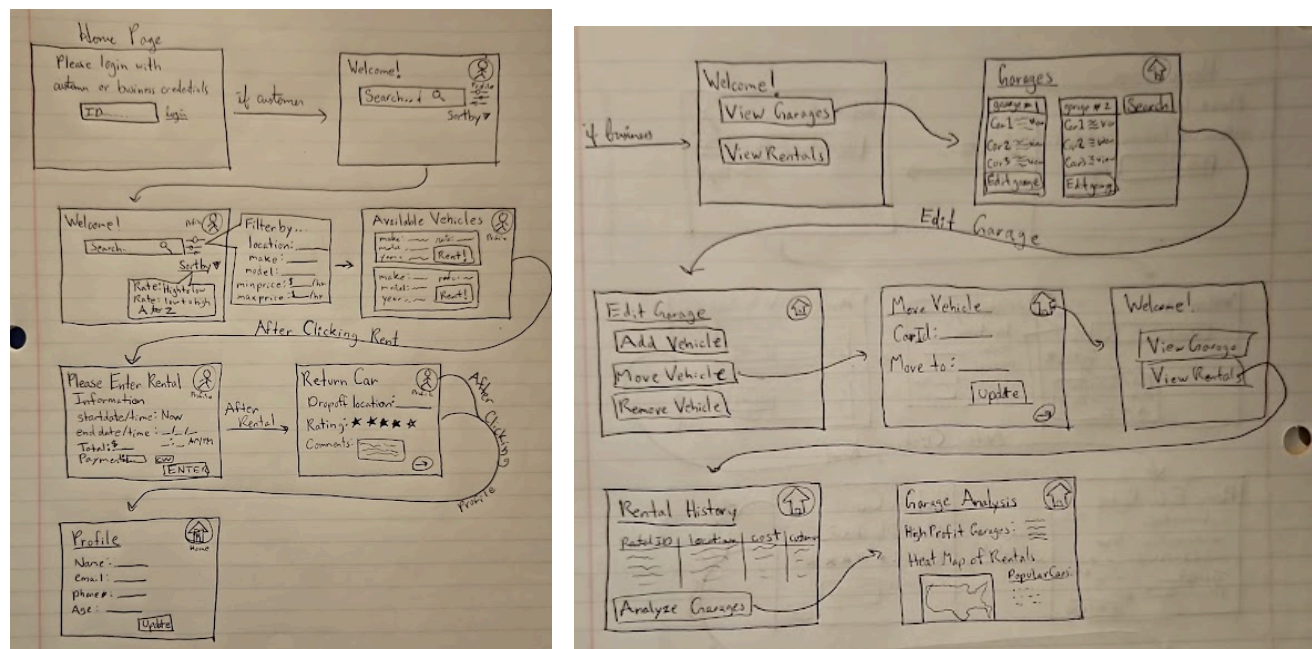 Home Page
Please login with
custom or business credentials
ID......
Login
if customer
Welcome!
Profile
Search...
Sort by
Welcome!
Search..
Sort by
Rate: High to low
Rate: low to high
A to Z
Filter by...
location:
make:
model:
min price: $ /hr
max price: $ /hr
Available Vehicles
Profile
make: rate:
model:
year: Rent!
make: rate:
model:
year: Rent!
After Clicking Rent
Please Enter Rental
Information
Profile
start date/time: Now
end date/time: _/_/_
_:_ AM/PM
Total: $
Payment:
ENTER
After
Rental
Return Car
Profile
Dropoff location:
Rating: ★★★★★
Comments:
After Clicking
Profile
Profile
Home
Name:
email:
phone#:
Age:
Update
if business
Welcome!
View Garages
View Rentals
Garages
garage #1
Car1 view
Car2 view
Car3 view
Edit garage
garage #2
Car1 view
Car2 view
Car3 view
Edit garag
Search
Edit Garage
Edit Garage
Add Vehicle
Move Vehicle
Remove Vehicle
Move Vehicle
CarId:
Move to:
Update
Welcome!
View Garage
View Rentals
Rental History
location cost
Analyze Garages
Garage Analysis
High Profit Garages:
Heat Map of Rentals
Popular Cars: